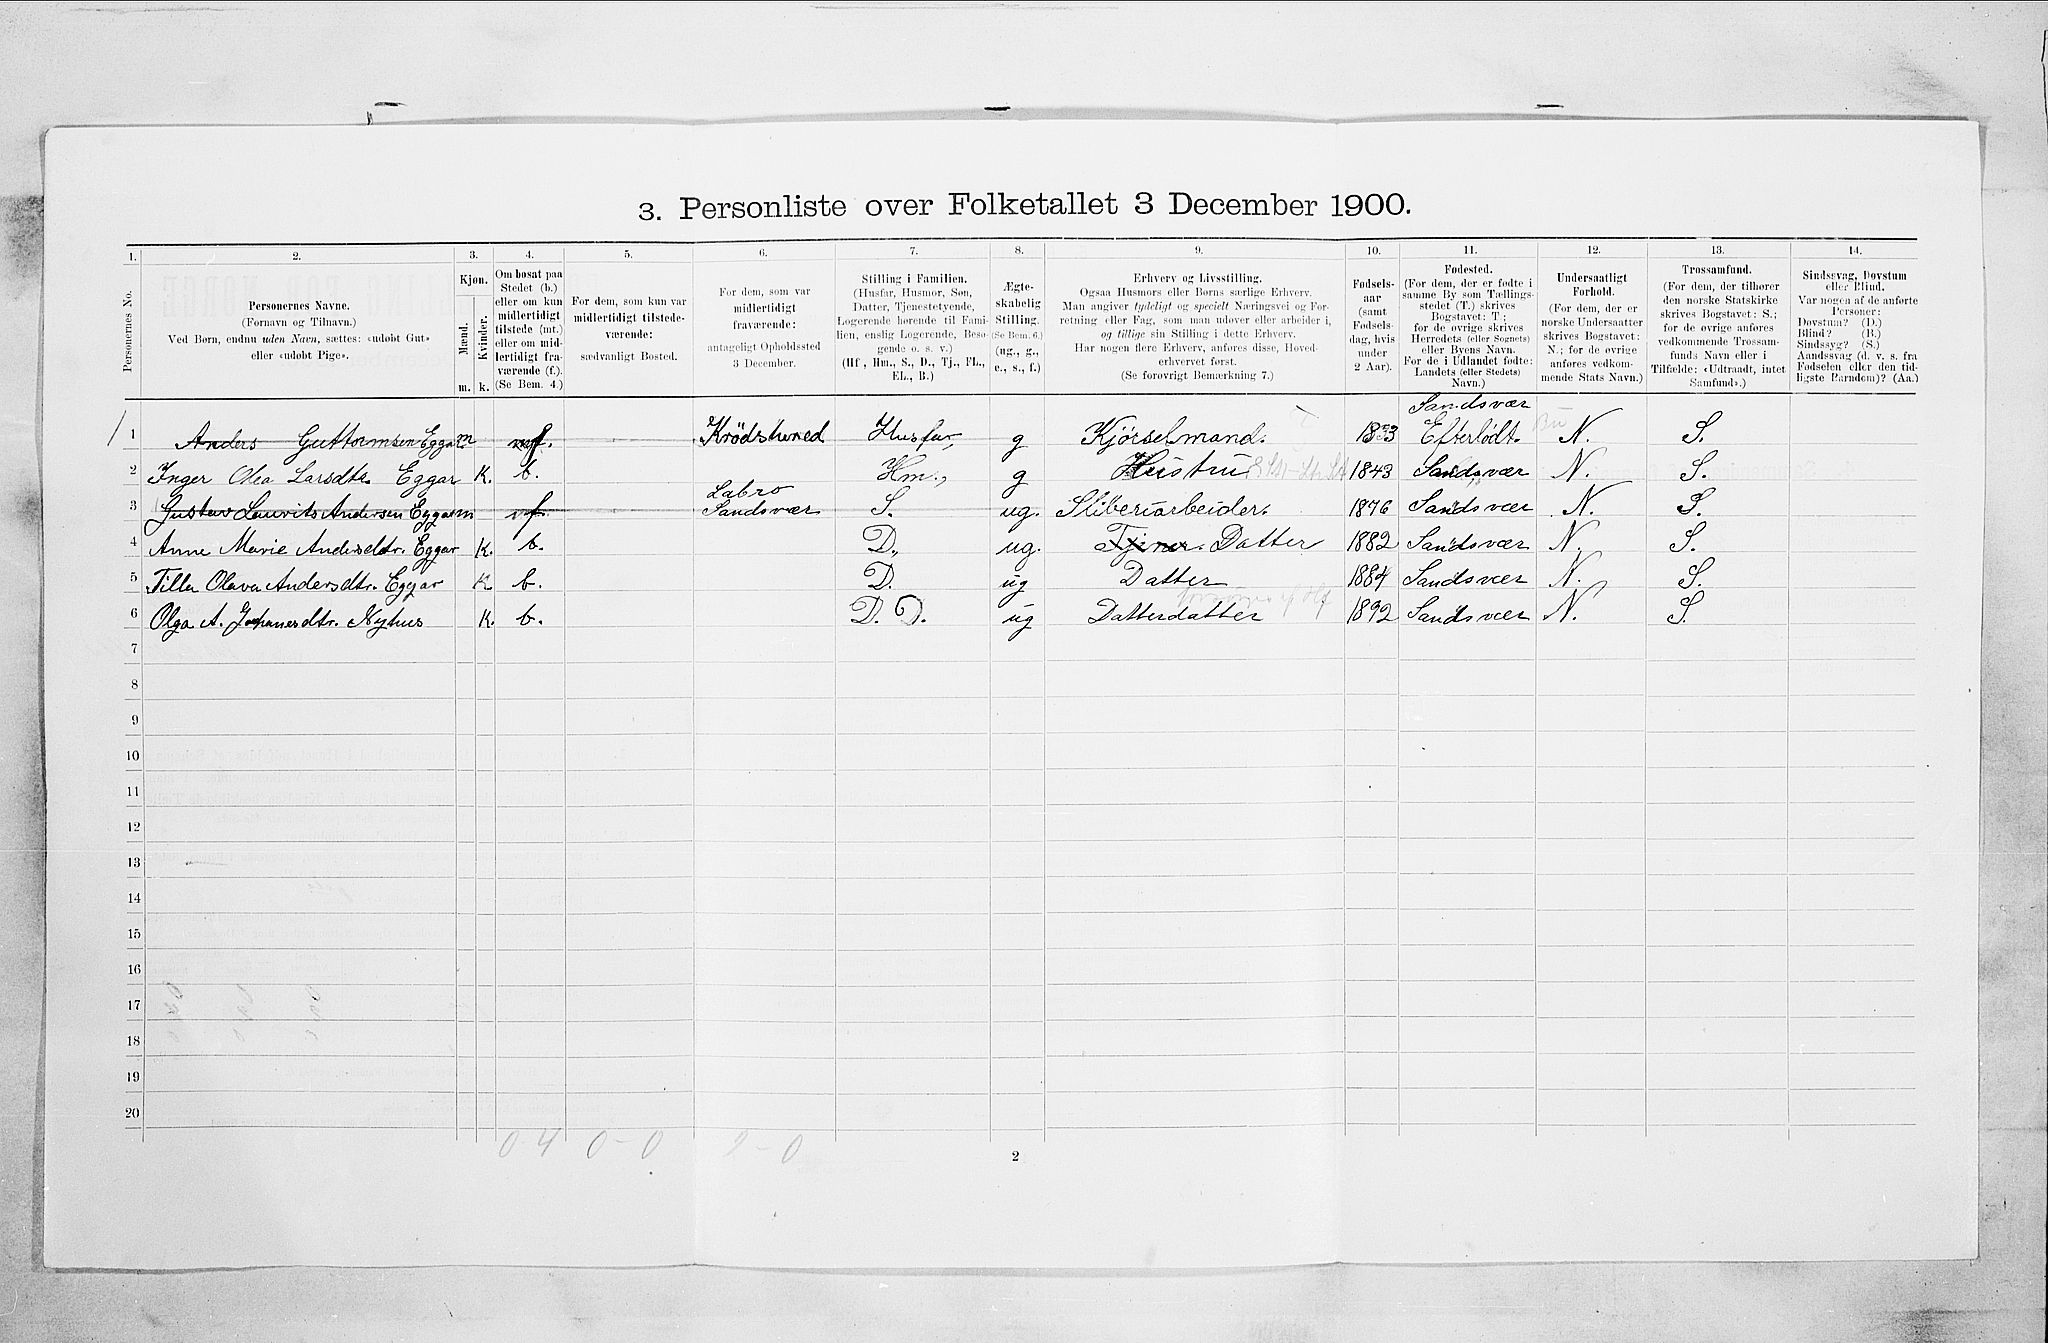 3. Personliste over Folketallet 3 December 1900.
1. 2. 3. 4. 5. 6. 7. 8. 9. 10. 11. 12. 13. 14.
Personernes No.
Personernes Navne.
(Fornavn og Tilnavn.)
Ved Børn, endnu uden Navn, sættes: «udøbt Gut»
eller «udøbt Pige».
Kjøn.
Mænd.
Kvinder.
m. k.
Om bosat paa
Stedet (b.)
eller om kun
midlertidigt
tilstede (mt.)
eller om mid-
lertidigt fra-
værende (f.).
(Se Bem. 4.)
For dem, som kun var
midlertidigt tilstede-
værende:
sædvanligt Bosted.
For dem, som var
midlertidigt
fraværende:
antageligt Opholdssted
3 December.
Stilling i Familien.
(Husfar, Husmor, Søn,
Datter, Tjenestetyende,
Logerende hørende til Fami-
lien, enslig Logerende, Besø-
gende o. s. v.)
(Hf., Hm., S., D., Tj., FL.,
EL., B.)
Ægte-
skabelig
Stilling.
(Se Bem. 6.)
(ug., g.,
e., s., f.)
Erhverv og Livsstilling.
Ogsaa Husmors eller Børns særlige Erhverv.
Man angiver tydeligt og specielt Næringsvei og For-
retning eller Fag, som man udøver eller arbeider i,
og tillige sin Stilling i dette Erhverv.
Har nogen flere Erhverv, anføres disse, Hoved-
erhvervet først.
(Se forøvrigt Bemærkning 7.)
Fødsels-
aar
(samt
Fødsels-
dag, hvis
under
2 Aar).
Fødested.
(For dem, der er fødte i
samme By som Tællings-
stedet (T.) skrives
Bogstavet: T;
for de øvrige skrives
Herredets (eller Sognets)
eller Byens Navn.
For de i Udlandet fødte:
Landets (eller Stedets)
Navn.)
Undersaatligt
Forhold.
(For dem, der er
norske Undersaatter
skrives Bogstavet:
N.; for de øvrige
anføres vedkom-
mende Stats Navn.)
Trossamfund.
(For dem, der tilhører
den norske Statskirke
skrives Bogstavet: S.;
for de øvrige anføres
vedkommende Trossam-
funds Navn eller i
Tilfælde: «Udtraadt, intet
Samfund».)
Sindssvag, Døvstum
eller Blind.
Var nogen af de anførte
Personer:
Døvstum? (D.)
Blind? (B.)
Sindssyg? (S.)
Aandssvag (d. v. s. fra
Fødselen eller den tid-
ligste Barndom)? (Aa.)
Sandsvær
1 Anders Guttormsen Eggar m f. Krödshered Husfar, g Kjörselmand. 1833 Efterlödt. N. S.
2 Inger Olea Larsdtr. Eggar K. b. Hm., g Hustru 1843 Sandsvær N. S.
Labro
3 Gustav Lauvits Andersen Eggar m f. Sandsvær S. ug. Sliberiarbeider. 1876 Sandsvær N. S.
4 Anne Marie Andersdtr. Eggar K. b. D., ug. Tjener. Datter 1882 Sandsvær N. S.
5 Tilla Olava Andersdtr. Eggar K b. D. ug Datter 1884 Sandsvær N. S.
6 Olga A. Johanesdtr. Nyhus K. b. D. D. ug Datterdatter 1892 Sandsvær N. S.
7
8
9
10
11
12
13
14
15
16
17
18
19
20
0-4 0-0 2-0
2